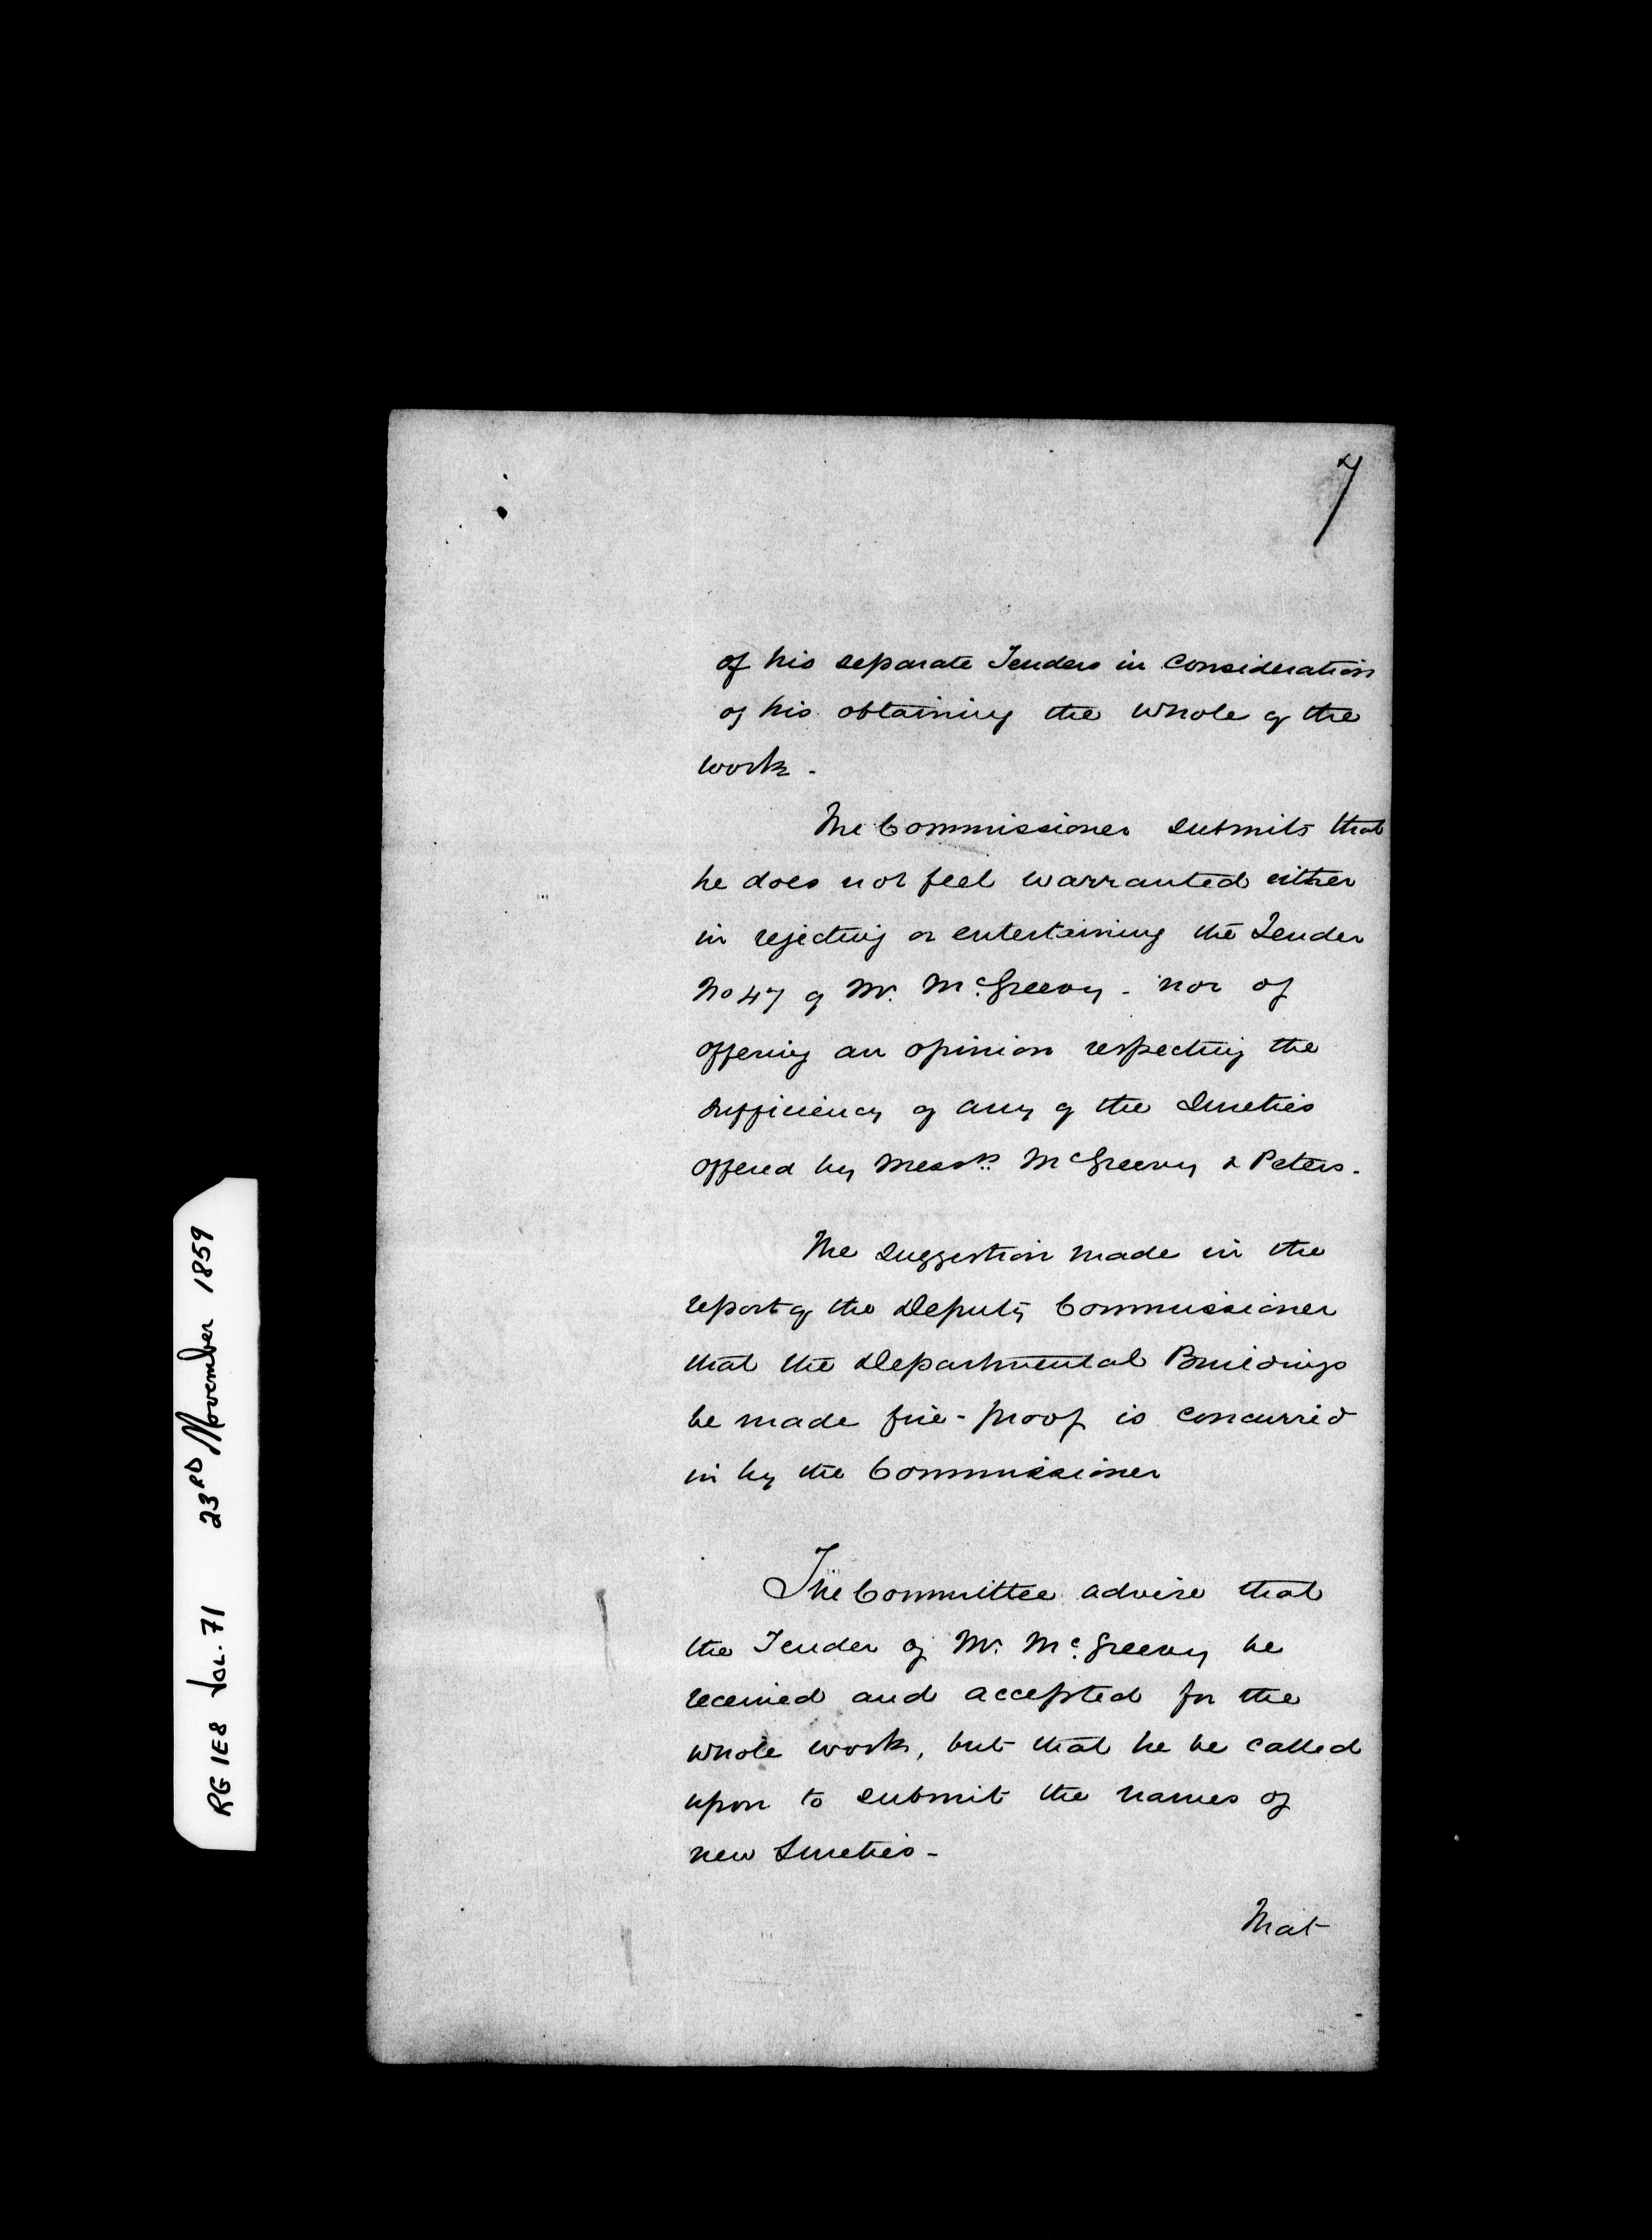 7
of his separate Tenders in consideration
of his obtaining the whole of the
work -
The Commissioner submits that
he does not feel warranted either
in rejecting or entertaining the Tender
No 47 of Mr. McGreevy - nor of
offering an opinion respecting the
sufficiency of any of the Sureties
offered by Messrs McGreevy & Peters.
The suggestion made in the
report of the Deputy Commissioner
that the Departmental Buildings
be made fire-proof is concurred
in by the Commissioner
The Committee advise that
the Tender of Mr. McGreevy be
received and accepted for the
whole work, but that he be called
upon to submit the names of
new Sureties -
That
RG 1E8 Vol. 71 23RD November 1859